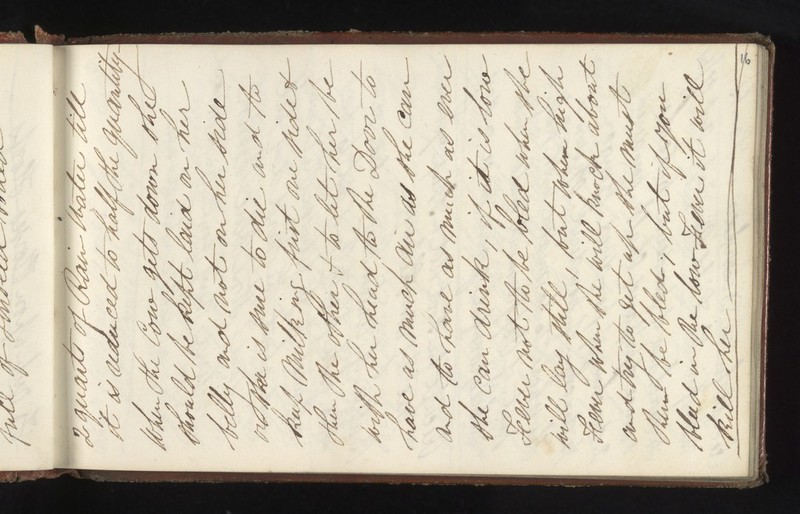 full of Linseed
16
2 quarts of Rain Water till
it is reduced to half the quantity
When the Cow gets down she
should be kept laid on her
belly and not on her side
or she is sure to die and to
keep milking first on side &
then the other & to let her be
with her head to the Door to
have as much air as she can
and to have as much as ever
she can drink, if it is low
Fever not to be bled when she
will lay still, but when high
Fever when she will knock about
and try to get up she must
then be bled, but if you
bleed in the low Fever it will
kill her